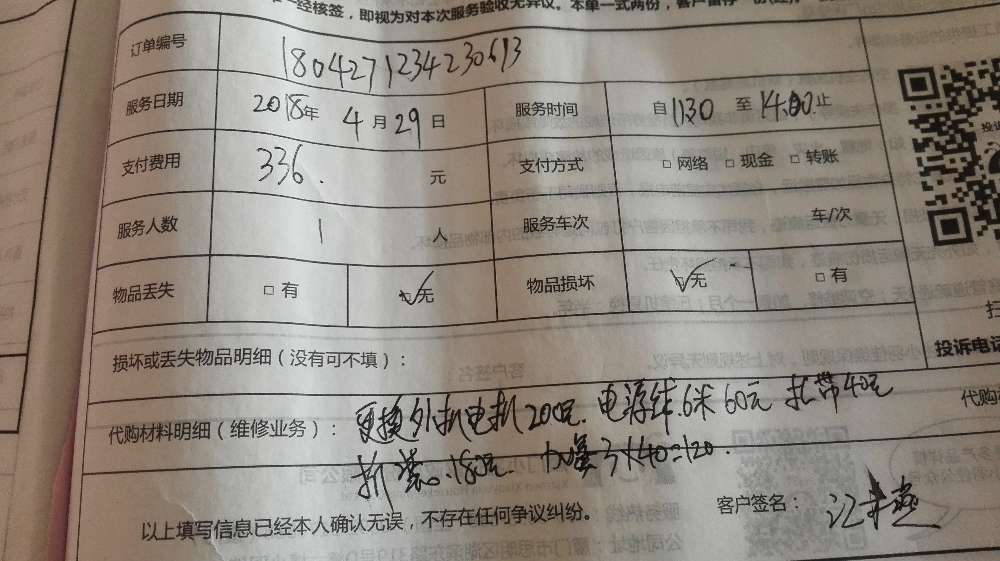 一经核签，即视为对本次服务验收无异议。本单一式两份，客户留存一份
订单编号 1804271234230613
服务日期 2018年 4月29日 服务时间 自 1130 至 14:00 止
支付费用 336. 元 支付方式 □ 网络 □ 现金 □ 转账
服务人数 1 人 服务车次 车/次
物品丢失 □ 有 ☑无 物品损坏 ☑无 □ 有
损坏或丢失物品明细（没有可不填）：
投诉电话
代购材料明细（维修业务）： 更换外机电机200元. 电源线.6米 60元 扎带40元
代购
拆装.180元. 加氟3×40=120.
客户签名：
以上填写信息已经本人确认无误，不存在任何争议纠纷。